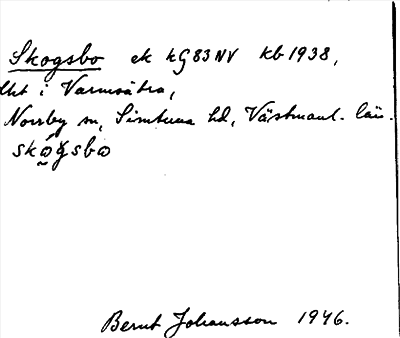 Skogsbo ek kG83NV kb 1938,
lht i Varmsätra,
Norrby sn, Simtuna hd, Västmanl. län.
skώgsbω
Bernt Johansson 1946.